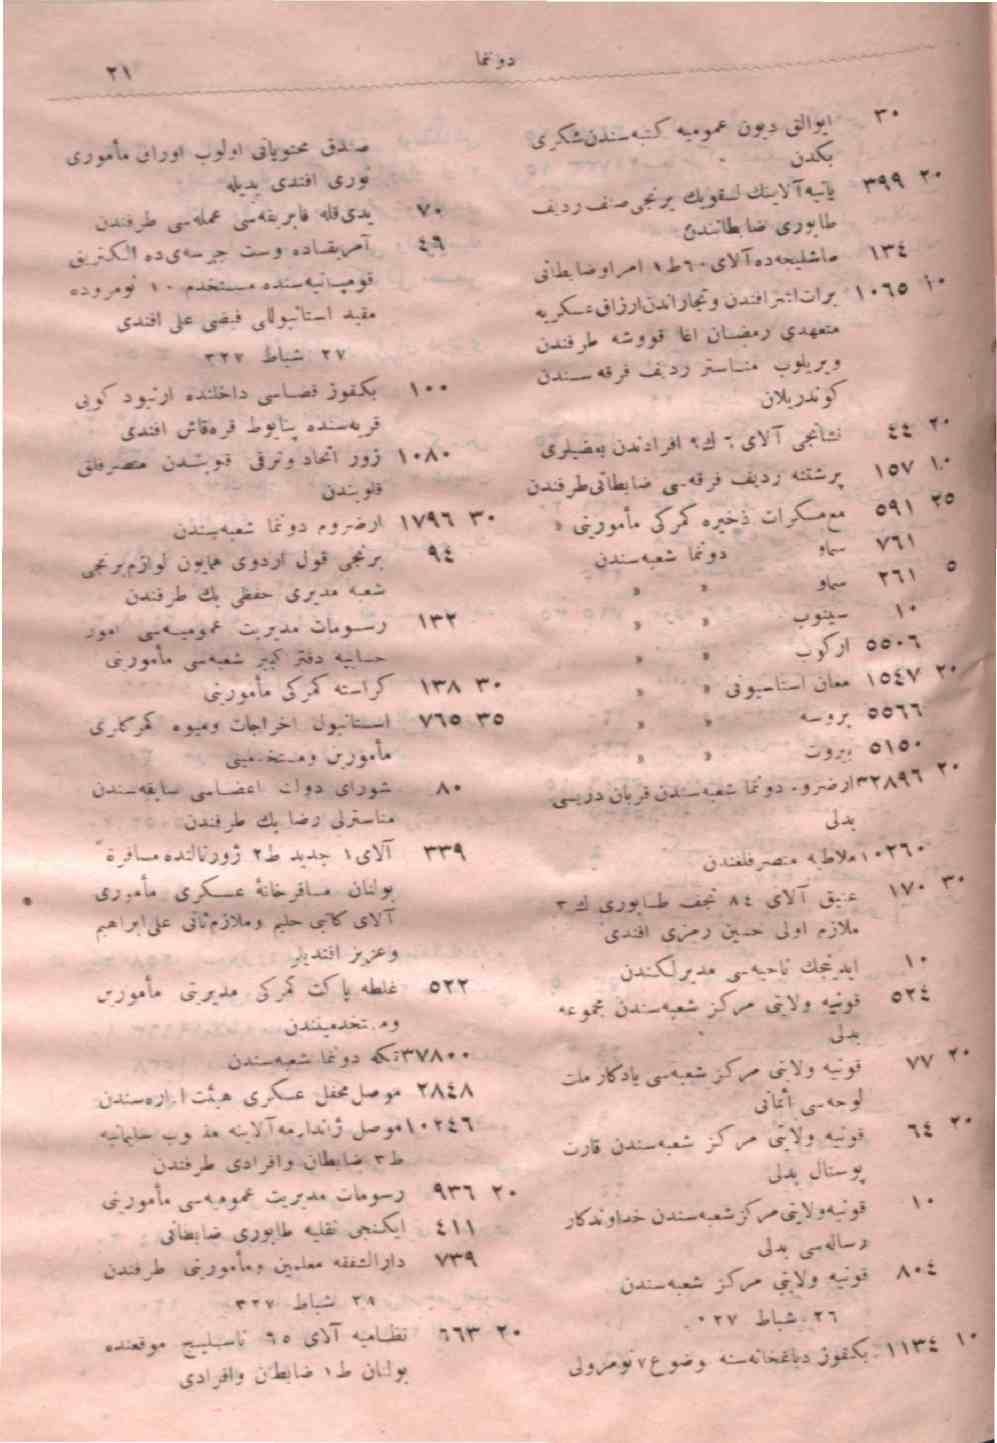 ٢١ دونما
٣٠ ايوالق ديون عموميه كتبه‌سندن شكرى
بكدن
٢٠ ٣٩٩ يانيه آلاينك برنجى صنف رديف
طابورى ضابطانندن
١٣٤ ده آلاى ٦٠ ط ١ امرا وضابطانى
١٠ ١٠٦٥ وتجاراندن ارزاق عسكريه
متعهدى رمضان اغا قووشه طرفندن
ويريلوب مناستر رديف فرقه‌سندن
كوندريلان
٢٠ ٤٤ نشانجى آلاى ٦ ك ٢ افرادندن بعضيلرى
١٠ ١٥٧ پرشتنه رديف فرقه‌سى ضابطانى طرفندن
٢٥ ٥٩١ مع مسكرات ذخيره كمركى مأمورينى «
٧٦١ سماو دونما شعبه‌سندن
٥ ٢٦١ سماو « «
١٠ سينوب « «
٥٥٠٦ اركوب « «
٢٠ ١٥٤٧ معان استاسيونى « «
٥٥٦٦ بروسه « «
٥١٥٠ بيروت « «
٢٠ ٣٢٨٩٦ ارضروم دونما شعبه‌سندن قربان دريسى
بدلى
١٠٢٦٠ ملاطيه متصرفلغندن
٣٠ ١٧٠ عتيق آلاى ٨٤ نجف طابورى ك ٣
ملازم اولى حسين رمزى افندى
١٠ ايدينجك ناحيه‌سى مديرلكندن
٥٢٤ قونيه ولايتى مركز شعبه‌سندن مجموعه
بدلى
٢٠ ٧٧ قونيه ولايتى مركز شعبه‌سى يادكار ملت
لوحه‌سى أثمانى
٢٠ ٦٤ قونيه ولايتى مركز شعبه‌سندن قارت
پوستال بدلى
١٠ قونيه ولايتى مركز شعبه‌سندن خداوندكار
رساله‌سى بدلى
٨٠٤ قونيه ولايتى مركز شعبه‌سندن
٢٦ شباط ٣٢٧
١٠ ١١٣٤ بكقوز دباغخانه‌سنه وضوع ٧ نومرولى
صندق محتوياتى اولوب اوراق مأمورى
نورى افندى يديله
٧٠ يدى قله فابريقه‌سى عمله‌سى طرفندن
٤٩ آمريقاده وست جرسه‌ى‌ده الكتريق
قومپانيه‌سنده مستخدم ١٠ نومروده
مقيد استانبوللى فيضى على افندى
٢٧ شباط ٣٢٧
١٠٠ بكقوز قضاسى داخلنده ارنبود كويى
قريه‌سنده پنايوط قره‌قاش افندى
١٠٨٠ زور اتحاد وترقى قلوبندن متصرفلق
قلوبندن
٣٠ ١٧٩٦ ارضروم دونما شعبه‌سندن
٩٤ برنجى قول اردوى همايون لوازم برنجى
شعبه مديرى حفظى بك طرفندن
١٣٢ رسومات مديريت عموميه‌سى امور
حسابيه دفتر كبير شعبه‌سى مأمورينى
٣٠ ١٣٨ كراسته كمركى مأمورينى
٣٥ ٧٦٥ استانبول اخراجات وميوه كمركلرى
مأمورين ومستخدمينى
٨٠ شوراى دولت اعضاسى سابقه‌سندن
مناسترلى رضا بك طرفندن
٣٣٩ آلاى ١ جديد ط ٢ ژورنالنده مسافرة
بولنان مسافرخانهٔ عسكرى مأمورى
آلاى كاتبى حليم وملازم ثانى على ابراهيم
وعزيز افنديلر
٥٢٢ غلطه پاكت كمركى مديريتى مأمورين
ومستخدميندن
٣٧٨٠٠ تكه دونما شعبه‌سندن
٢٨٤٨ موصل محفل عسكرى هيئت اداره‌سندن
١٠٢٤٦ موصل ژاندارمه آلاينه منسوب سليمانيه
ط ٣ ضابطان وافرادى طرفندن
٢٠ ٩٣٦ رسومات مديريت عموميه‌سى مأمورينى
٤١١ ايكنجى نقليه طابورى ضابطانى
٧٣٩ دارالشفقه معلمين ومأمورينى طرفندن
٢٨ شباط ٣٢٧
٢٠ ٦٦٣ نظاميه آلاى ٦٥ موقعنده
بولنان ط ١ ضابطان وافرادى